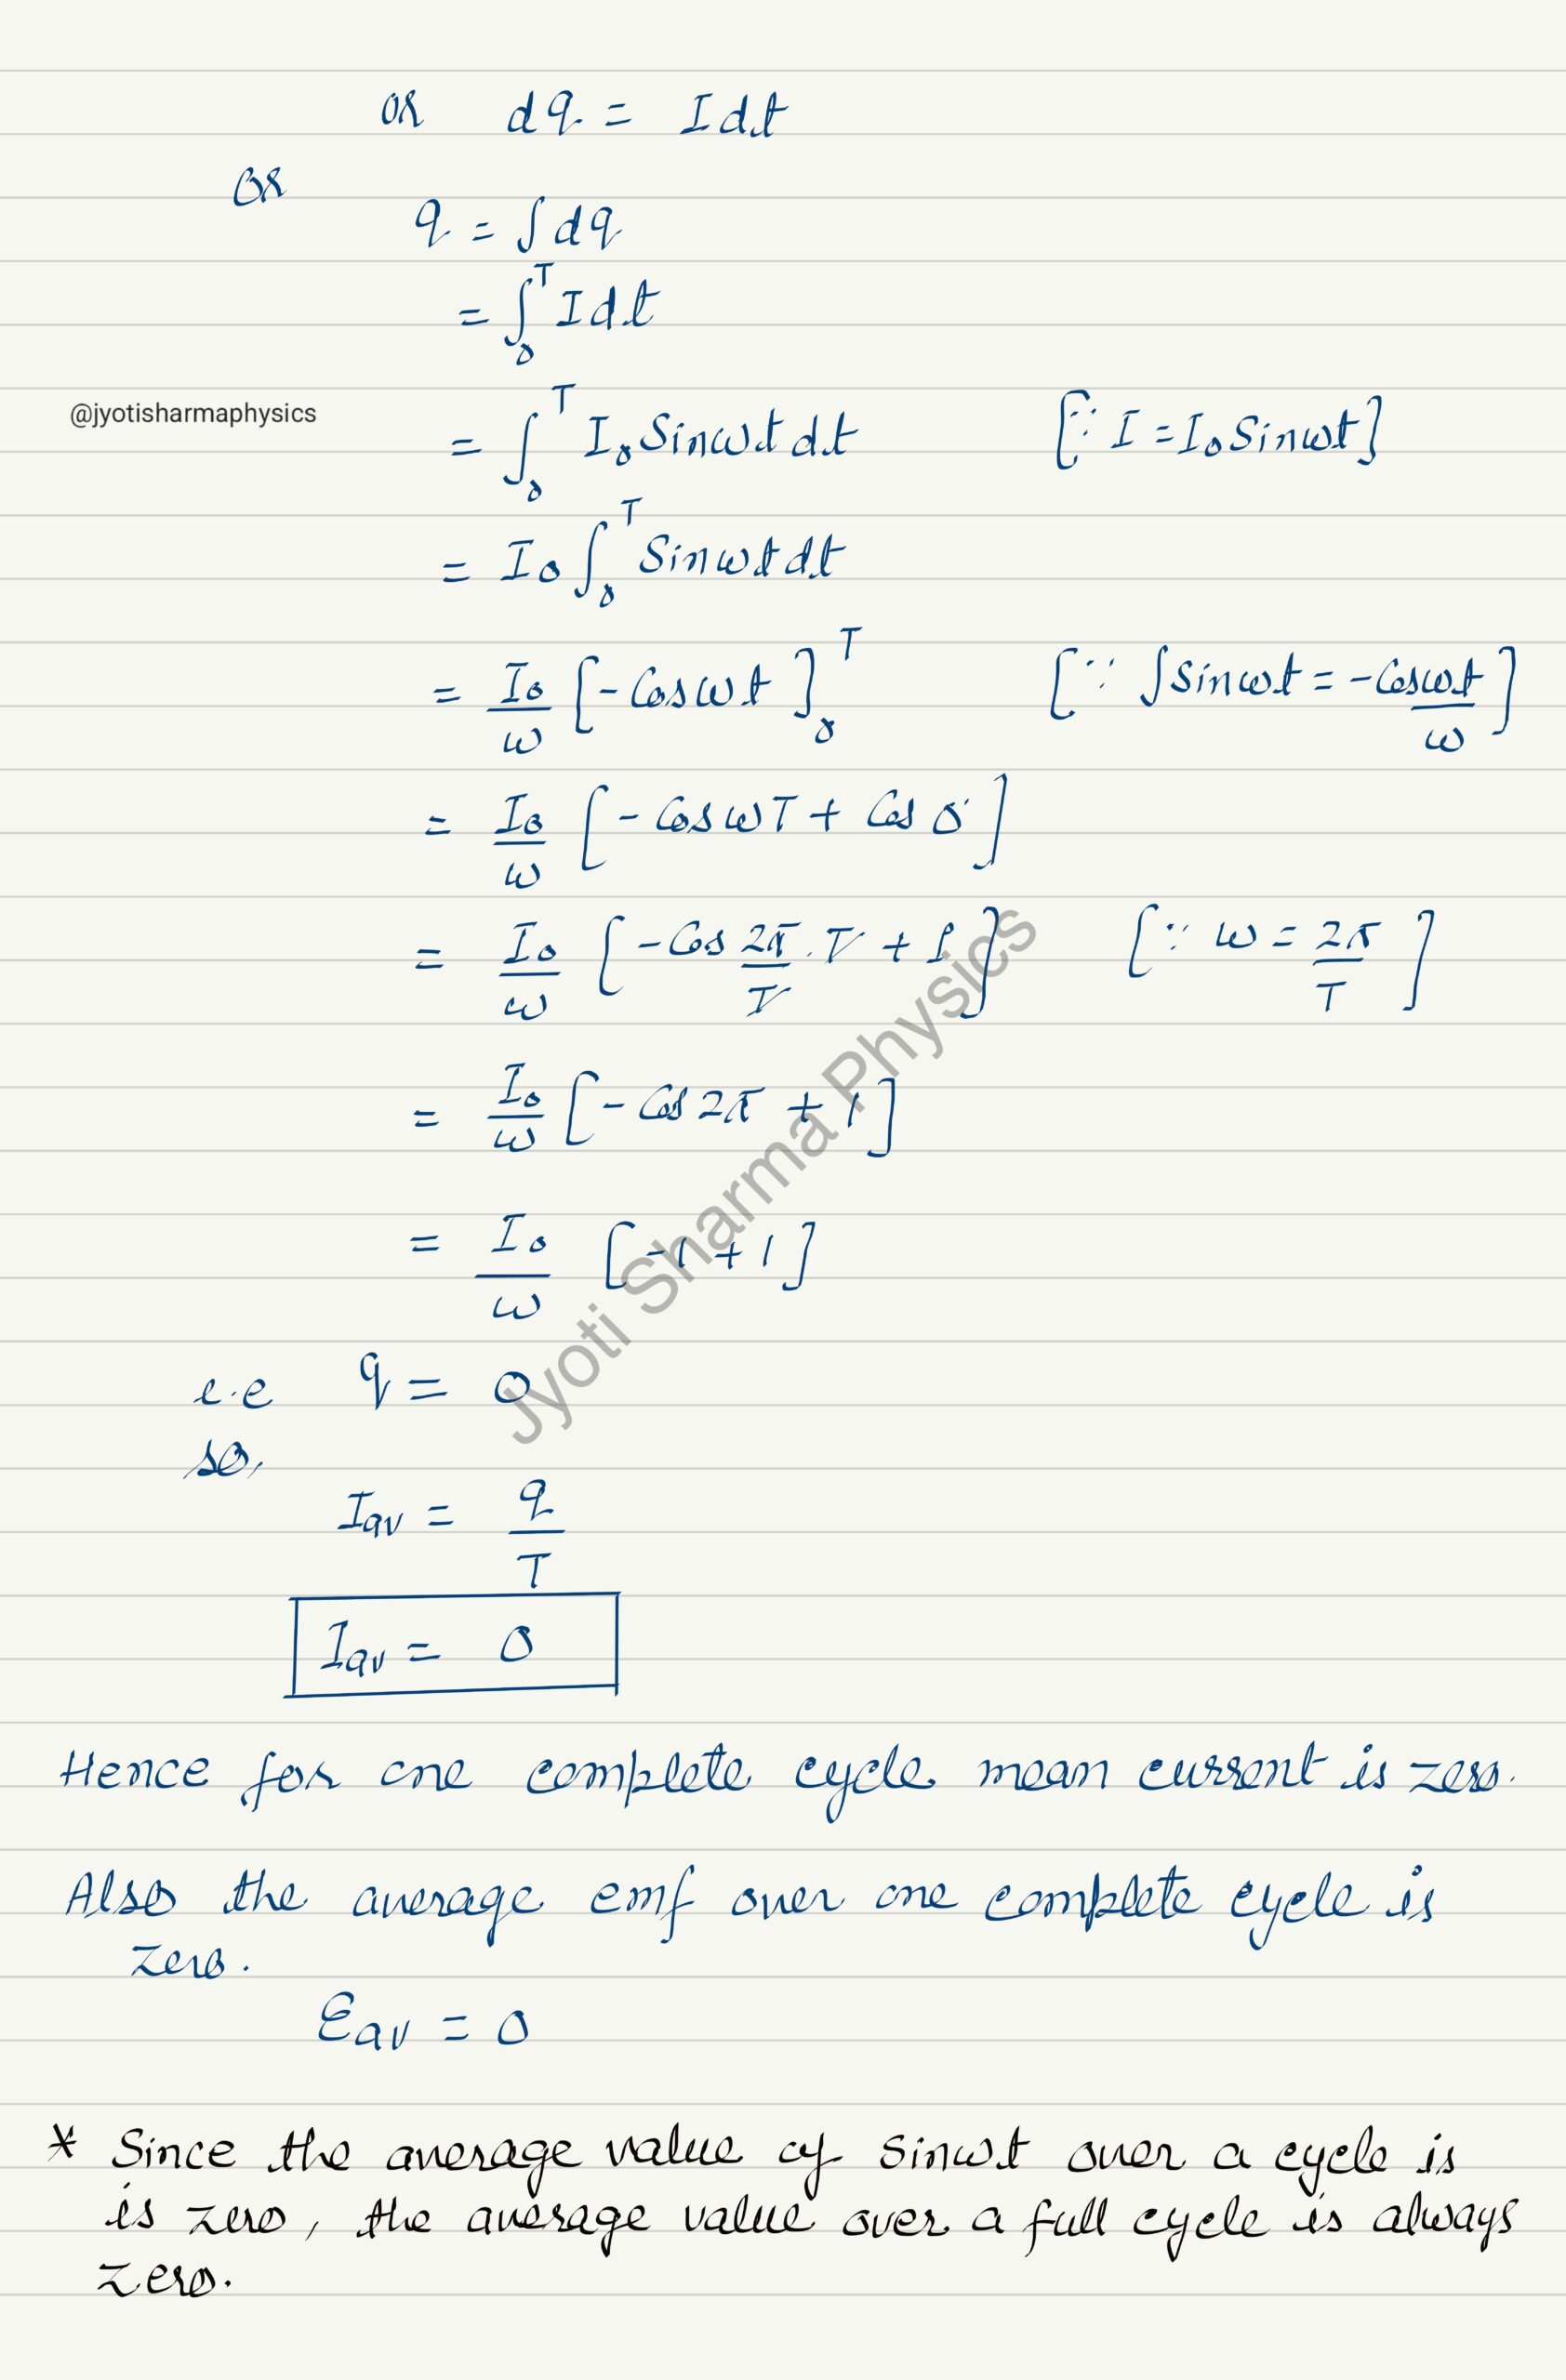 or dq = Idt
or
q = ∫dq
= ∫₀ᵀ Idt
@jyotisharmaphysics
= ∫₀ᵀ I₀ Sinωt dt [∵ I = I₀ Sinωt]
= I₀ ∫₀ᵀ Sinωt dt
= I₀/ω [-Cosωt]₀ᵀ [∵ ∫Sinωt = -Cosωt/ω]
= I₀/ω [-CosωT + Cos 0°]
= I₀/ω [-Cos 2π/T . T + 1] [∵ ω = 2π/T]
= I₀/ω [-Cos2π + 1]
= I₀/ω [-1 + 1]
i.e q = 0
so,
Iav = q/T
Iav = 0
Hence for one complete cycle mean current is zero.
Also the average emf over one complete cycle is
zero.
Eav = 0
* Since the average value of sinωt over a cycle is
is zero, the average value over a full cycle is always
zero.
Jyoti Sharma Physics